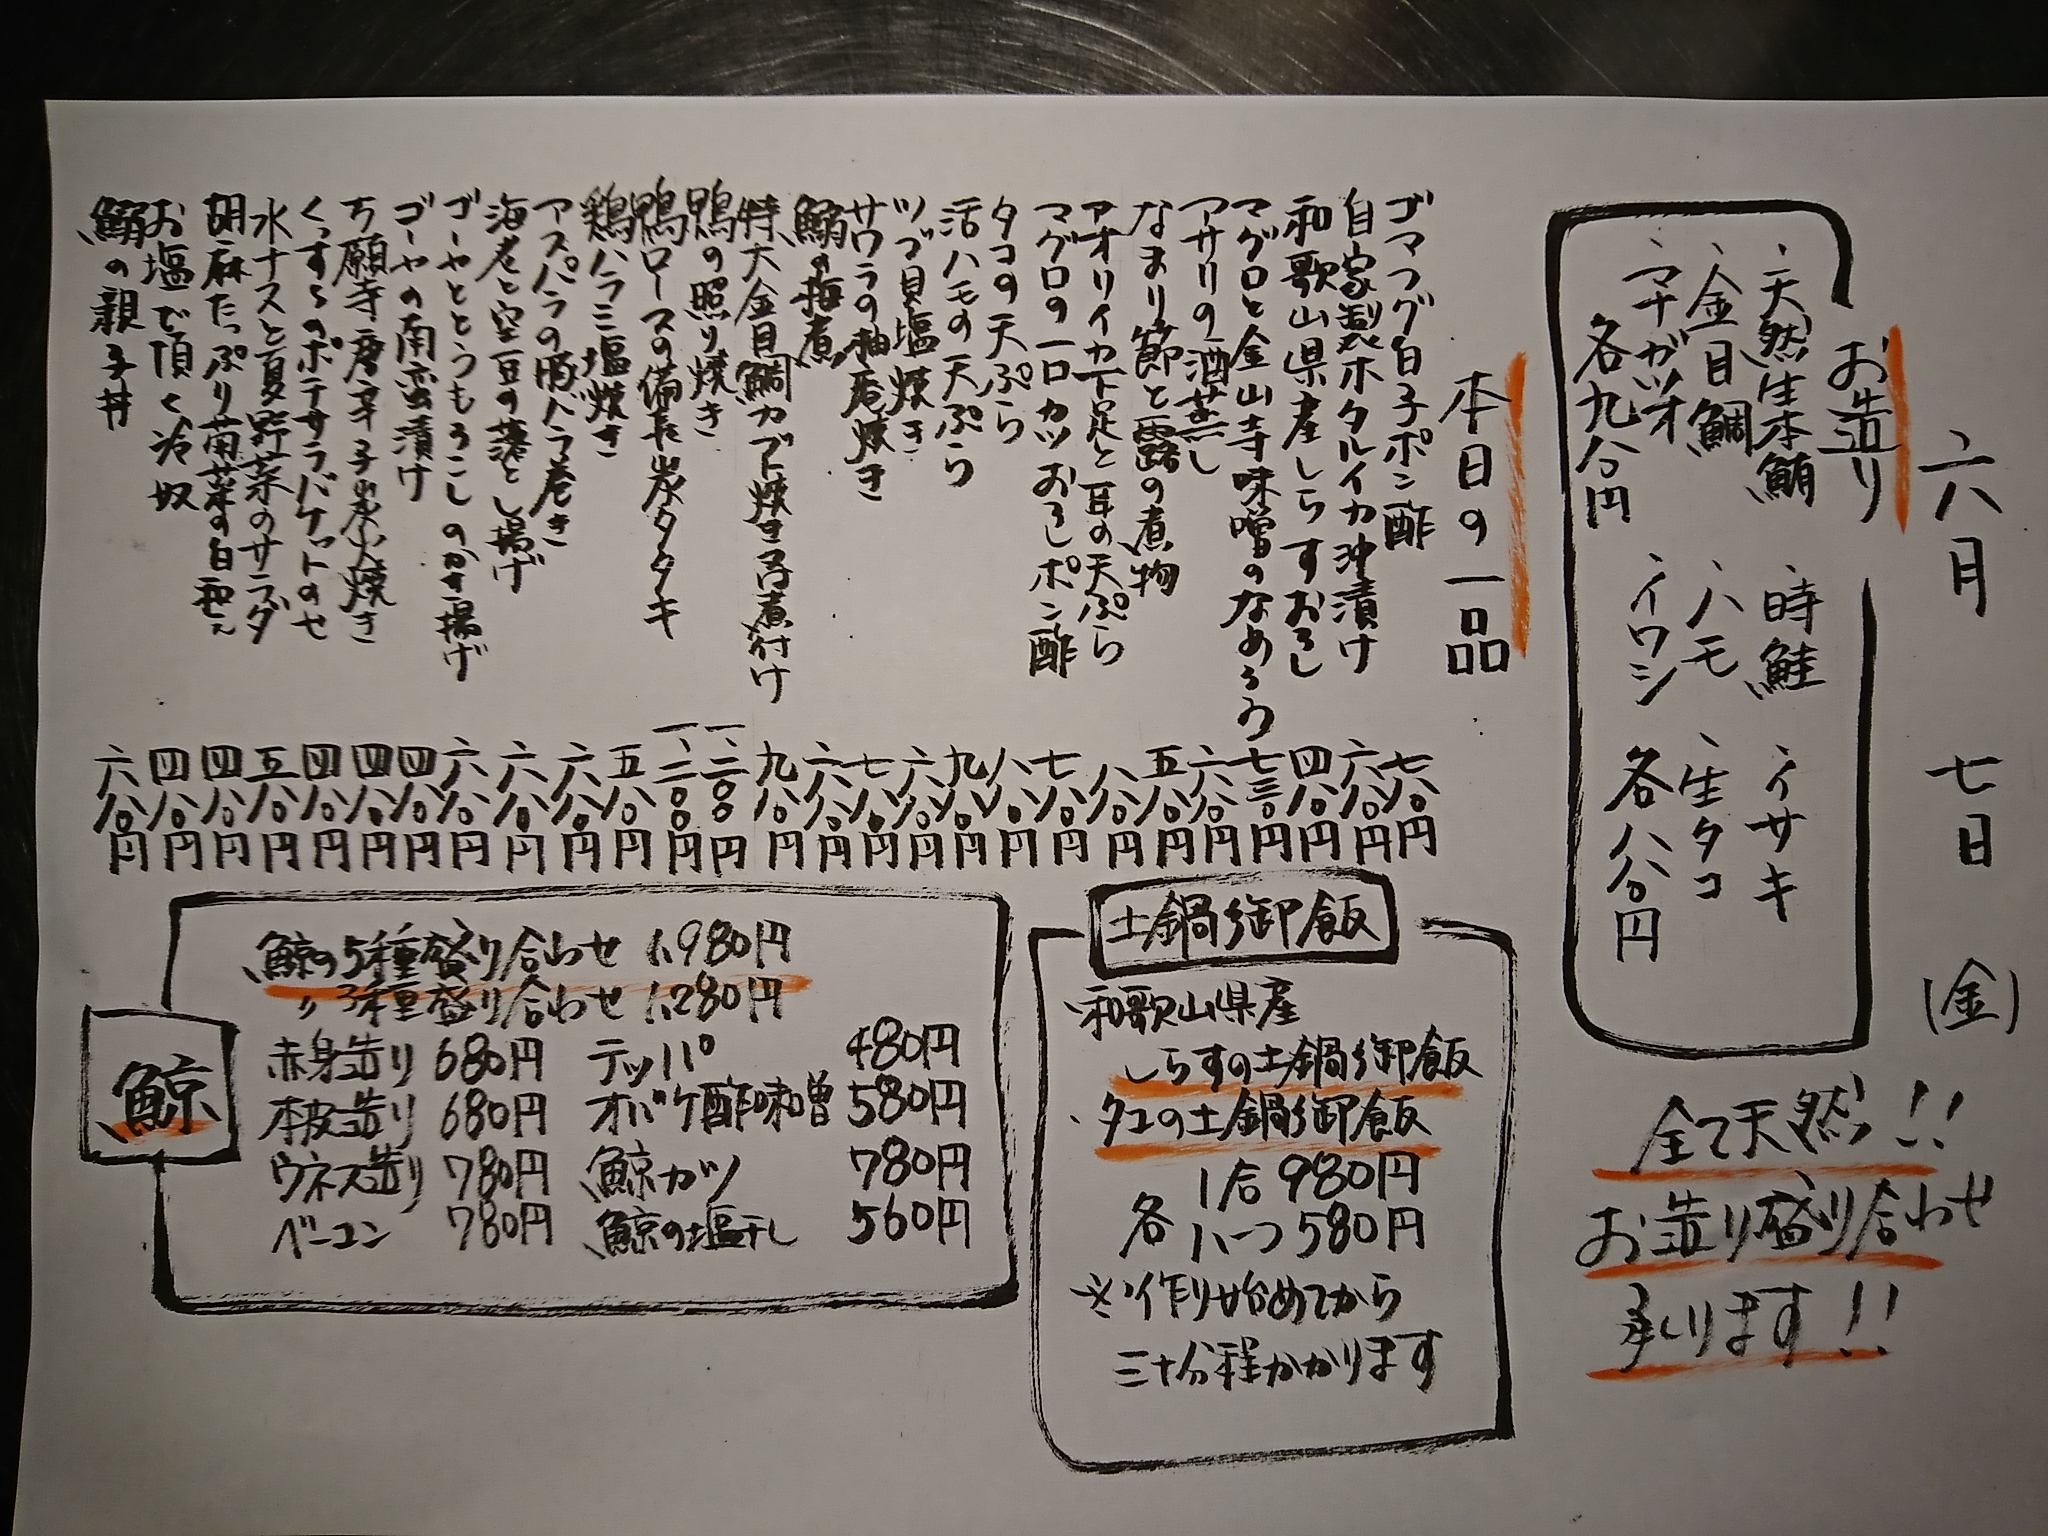 六月 七日 (金)
お造り
・天然生本鮪 ・時鮭 ・イサキ
・金目鯛 ・ハモ ・生タコ
・マナガツオ ・イワシ
各九八〇円 各八八〇円
全て天然!!
お造り盛り合わせ
承ります!!
本日の一品
ゴマフグ白子ポン酢 七八〇円
自家製ホタルイカ沖漬け 六八〇円
和歌山県産しらすおろし 四八〇円
マグロと金山寺味噌のなめろう 七三〇円
アサリの酒蒸し 六八〇円
なまり節と露の煮物 五八〇円
アオリイカ下足と耳の天ぷら 八八〇円
マグロの一口カツおろしポン酢 七八〇円
タコの天ぷら 八八〇円
活ハモの天ぷら 九八〇円
ツブ貝塩焼き 六八〇円
サワラの柚庵焼き 七八〇円
鰯の梅煮 六八〇円
特大金目鯛カブト焼き又は煮付け 九八〇円
鴨の照り焼き 一、二〇〇円
鴨ロースの備長炭タタキ 一、二〇〇円
鶏ハラミ塩焼き 五八〇円
アスパラの豚バラ巻き 六八〇円
海老と空豆の落とし揚げ 六八〇円
ゴーヤととうもろこしのかき揚げ 六八〇円
ゴーヤの南蛮漬け 四八〇円
万願寺唐辛子炭火焼き 四八〇円
くずし的ポテサラバケットのせ 四八〇円
水ナスと夏野菜のサラダ 五八〇円
胡麻たっぷり菊菜の白和え 四八〇円
お塩で頂く冷奴 四八〇円
鰯の親子丼 六八〇円
土鍋御飯
・和歌山県産
しらすの土鍋御飯
・タコの土鍋御飯
各 1合 980円
ハーフ 580円
※作り始めてから
三十分程かかります
鯨
鯨の5種盛り合わせ 1,980円
〃3種盛り合わせ 1,280円
赤身造り 680円 テッパ 480円
本皮造り 680円 オバケ酢味噌 580円
ウネス造り 780円 鯨カツ 780円
ベーコン 780円 鯨の塩干し 560円